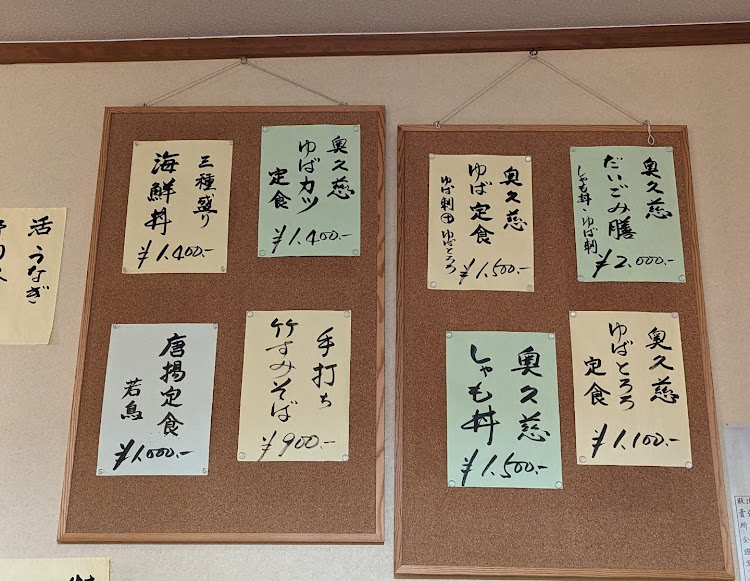 奥久慈
ゆばカツ
定食
¥1.400.-
三種盛り
海鮮丼
¥1.400.-
手打ち
竹すみそば
¥900.-
唐揚定食
若鳥
¥1.000.-
奥久慈
だいごみ膳
しゃも丼・ゆば刺
¥2.000.-
奥久慈
ゆば定食
ゆば刺㊉ゆばとろろ
¥1.500.-
奥久慈
ゆばとろろ
定食
¥1.100.-
奥久慈
しゃも丼
¥1.500.-
活うなぎ